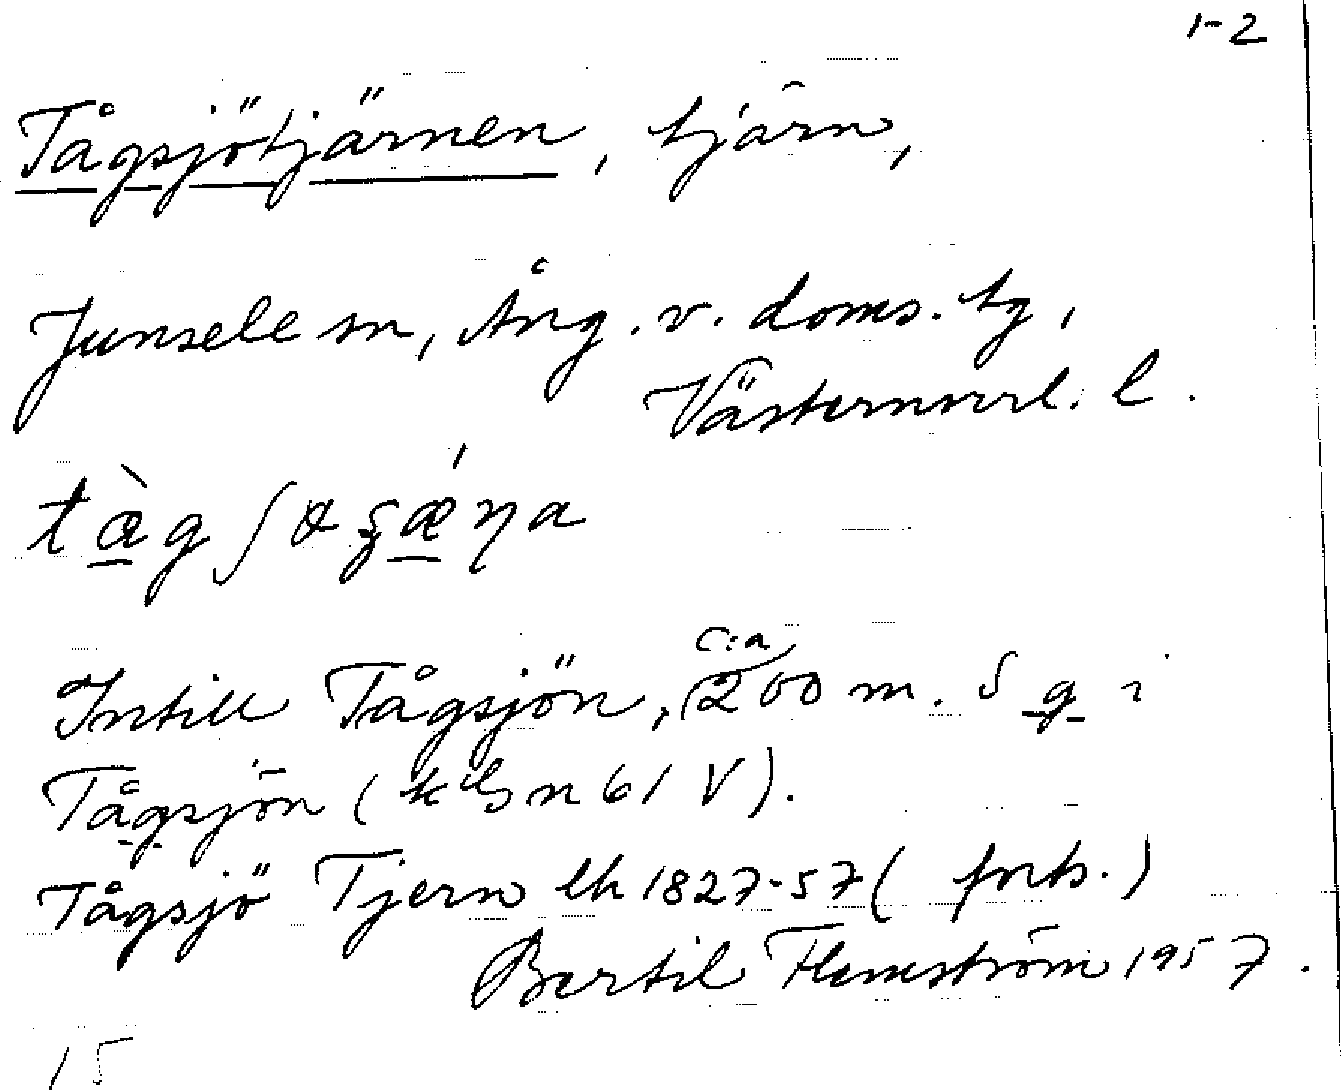 1-2
Tågsjötjärnen, tjärn,
Junsele sn, Ång. v. doms. tg,
Västernorrl. l.
Intill Tågsjön, c:a 200 m. S g i
Tågsjön (kbn 61 V).
Tågsjö Tjern lh 1827-57 ( forts. )
Bertil Flemström 1957.
15